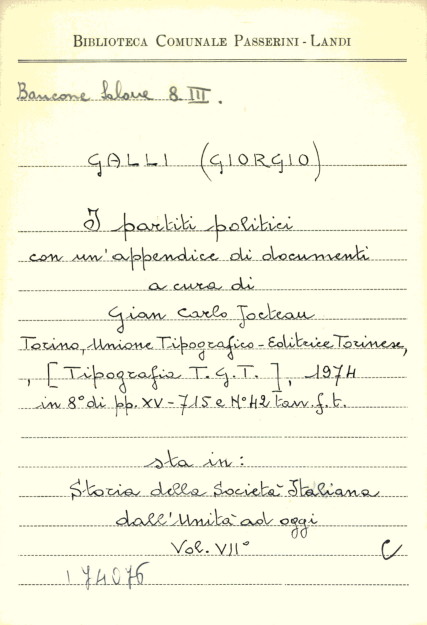 BIBLIOTECA COMUNALE PASSERINI - LANDI
Bancone Salone 8 III.
GALLI (GIORGIO)
I partiti politici
con un'appendice di documenti
a cura di
Gian Carlo Jocteau
Torino, Unione Tipografico-Editrice Torinese,
, [Tipografia T.G.T.], 1974
in 8° di pp. XV-715 e N° 42 tav. f. t.
sta in:
Storia della Società Italiana
dall'Unità ad oggi
Vol. VII° C
174076